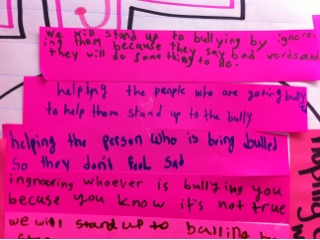 we will stand up to bullying by ignore-
ing them because they say bad words and
they will do something to do.
helping the people who are getting bully
to help them stand up to the bully
helping the person who is being bulled
so they don't feel sad
ingnoering whoever is bullying you
becuse you know it's not true
we will stand up to bulling